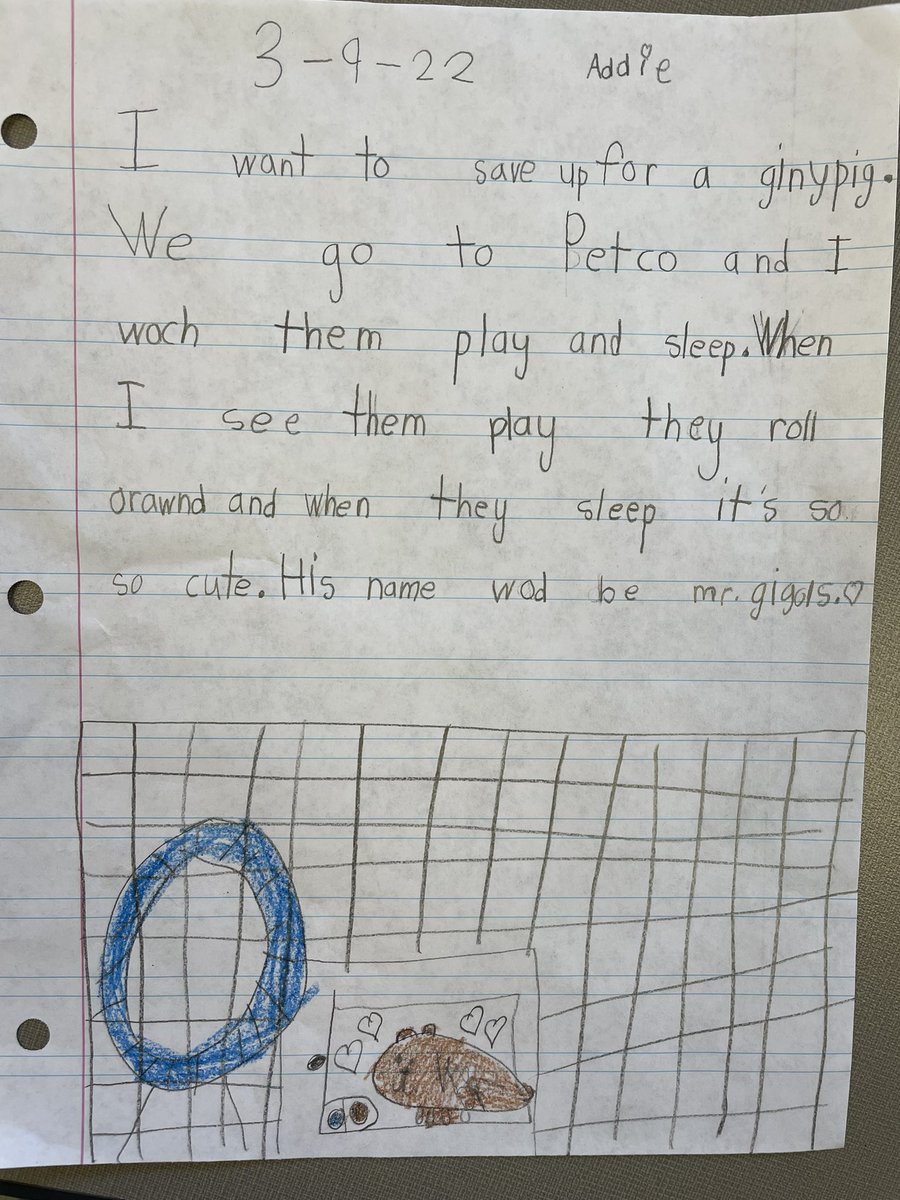 3-9-22 Addie
I want to save up for a ginypig.
We go to Petco and I
woch them play and sleep. When
I see them play they roll
orawnd and when they sleep it's so
so cute. His name wod be mr. gigols.♡